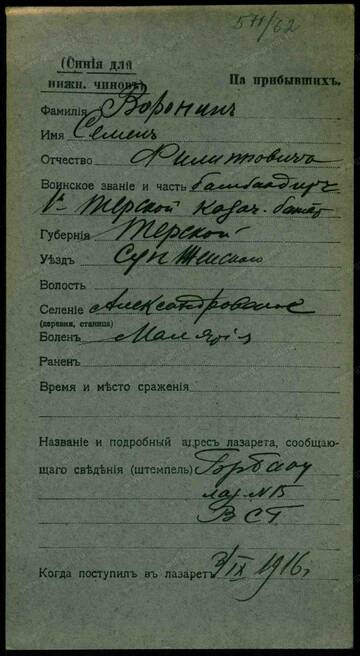 5П/62
(Синія для
нижн. чиновъ)
На прибывшихъ.
Фамилія Воронинъ
Имя Семенъ
Отчество Филиповичъ
Воинское званіе и часть бамбандиръ
1я Терской казач. бат
Губернія Терской
Уѣздъ Сунженскаго
Волость
Селеніе Александровское
(деревня, станица)
Боленъ Малярія
Раненъ
Время и мѣсто сраженія
Названіе и подробный адресъ лазарета, сообщаю-
щаго свѣдѣнія (штемпель)
лаз. №
ВСГ
Когда поступилъ въ лазаретъ 3/IX 1916 г